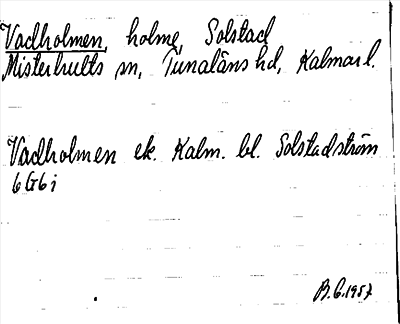 Vadholmen, holme, Solstad
Misterhults sn, Tunaläns hd, Kalmar l.
Vadholmen ek. Kalm. bl. Solstadström
6G6i
B.G.1957